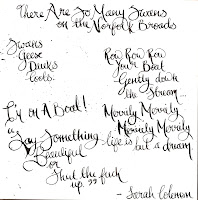 There Are So Many Swans
on the Norfolk Broads
Swans
Geese
Ducks
Coots.
Row Row Row
Your Boat
Gently down
the Stream...
I'm on A Boat!
Merrily Merrily
Merrily Merrily
life is but a dream
"Say Something
Beautiful
or
Shut the fuck
up."
- Sarah Coleman